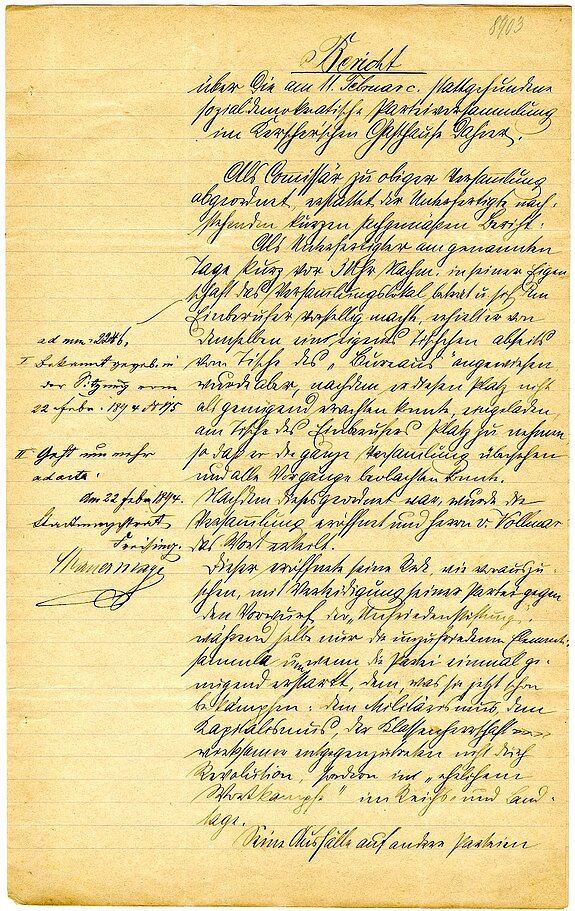 8903
Bericht
über die am 11. Februar c. stattgefundene
sozialdemokratische Parteiversammlung
im Kerscher'schen Gasthause dahier.
Als Comissär zu obiger Versammlung
abgeordnet, erstattet der Unterfertigte nach-
stehenden kurzen sachgemäßen Bericht:
Als Unterfertigter am genannten
Tage kurz vor 3 Uhr Nachm. in seiner Eigen-
schaft das Versammlungslokal betrat u. sich dem
Einberufer vorstellig machte, erhielt er von
demselben ein eigenes Tischchen abseits
vom Tische des "Bureaus" angewiesen
wurde aber, nachdem er diesen Platz nicht
als genügend erachten konnte, eingeladen
am Tische des Einberufers Platz zu nehmen
so daß er die ganze Versammlung übersehen
und alle Vorgänge beobachten konnte.
Nachdem dieses geordnet war, wurde die
Versammlung eröffnet und Herrn v. Vollmar
das Wort erteilt.
Dieser eröffnete seine Rede, wie vorauszu-
sehen, mit Verteidigung seiner Partei gegen
den Vorwurf der "Unfriedenstiftung",
während selbe nur die unzufriedenen Elemente
sammle um, wenn die Partei einmal ge-
nügend erstarkt, dem, was sie jetzt schon
bekämpfen: dem Militärismus, dem
Kapitalismus, der Klassenherrschaft
wirksamer entgegenzutreten nicht durch
Revolution, sondern im "ehrlichem
Wortkampfe" im Reichs- und Land-
tage.
Seine Ausfälle auf andere Parteien
ad num. 2246.
I Bekannt gegeb. in
der Sitzung vom
22 Febr. 1894 № 175
II Geht nunmehr
ad acta.
Am 22 Febr. 1894.
Stadtmagistrat
Freising.